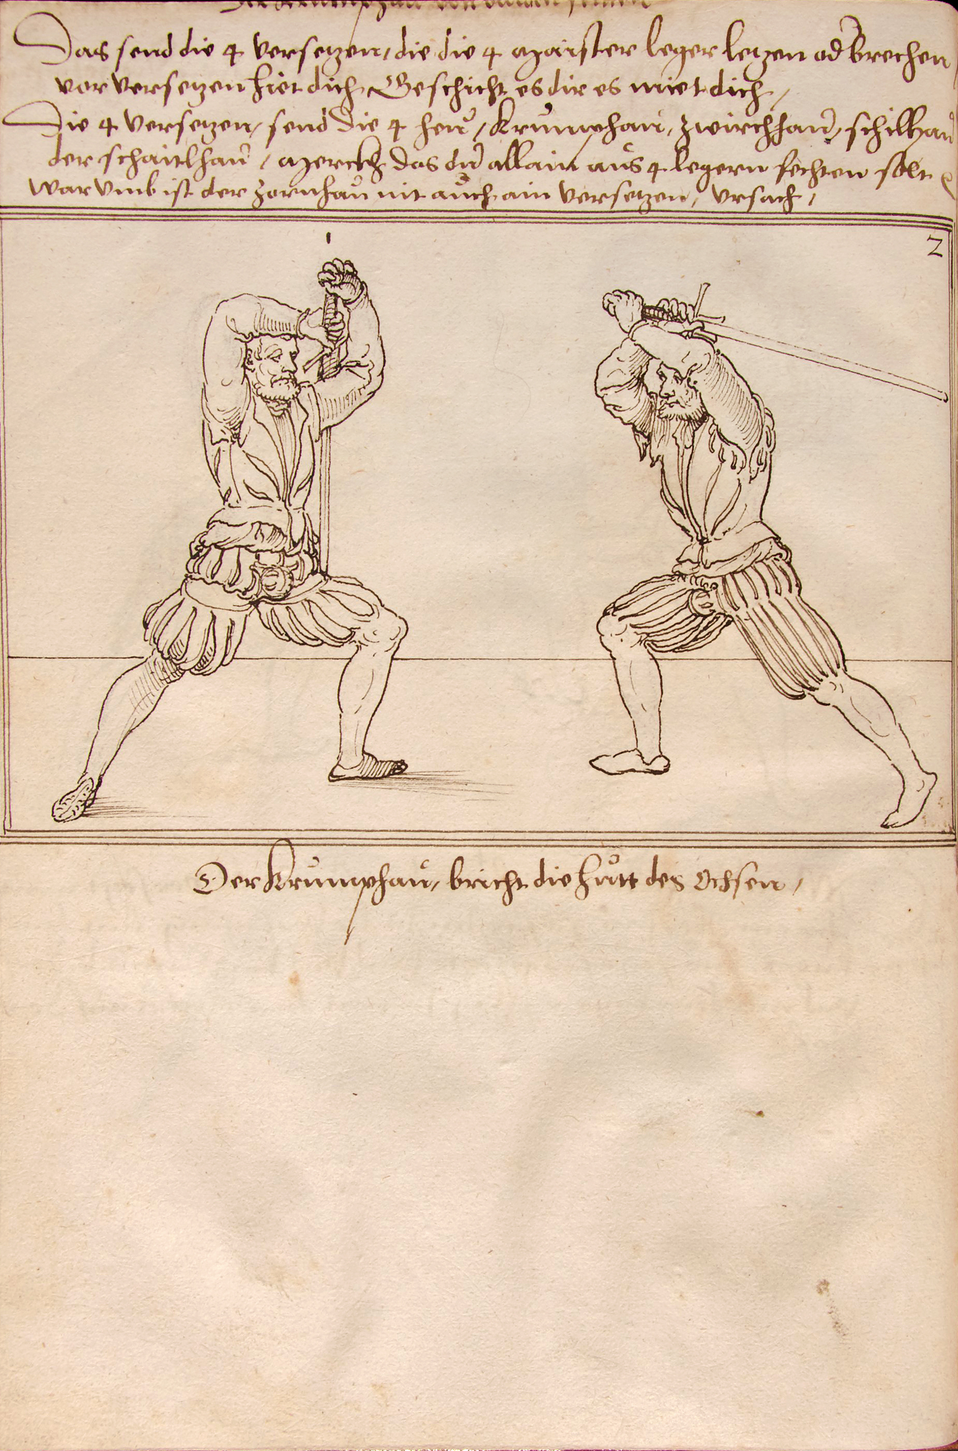 Das send die 4 versetzen, die die 4 maister leger letzen od brechen
vor versetzen hiet dich Geschicht es dir es miet dich,
Die 4 versetzen, send die 4 heü, Krumphaü, zwirchhaü, schilhaü
der schaitlhaü, merckh das dü allain aüs 4 legern fechten solt
warumb ist der zornhaü nit aüch ain versetzen, vrsach,
1
2
Der Krümphaü, bricht die hütt des Ochsen,